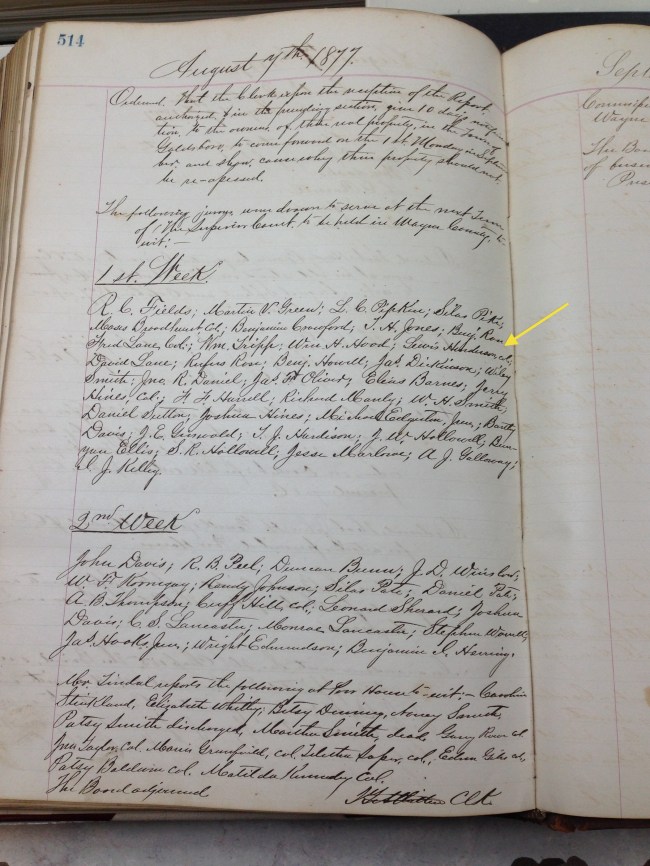 514
August 7th 1877.
Ordered That the Clerk upon the reception of the Report,
in the preceding section, give 10 days notifica
tion, to the owners of their real property, in the Town of
Goldsboro, to come forward on the 1st Monday in Septem
ber and show cause why their property should not
be re-assessed.
The following jurors were drawn to serve at the next Term
of The Superior Court, to be held in Wayne County, to
wit:—
1st. Week.
R. C. Fields; Martin V. Green; L. C. Pipkin; Silas Pike;
Moses Broadhurst Col; Benjamin Crawford; T. H. Jones; Benj. Rose
Fred Lane, Col; Wm. Tripp; Wm H. Hood; Lewis Henderson, col;
David Lane; Rufus Rose; Benj. Howell; Jas. Dickinson; Wiley
Smith; Jno. R. Daniel; Jas. F. Oliver; Elias Barnes; Jerry
Hines, Col; F. F. Harrell; Richard Manly; W. H. Smith;
Daniel Sutton; Joshua Hines; Michael Edgerton, Junr; Barth
Davis; J. E. Griswold; T. J. Hardison; J. W. Hollowell; Bun
yan Ellis; S. R. Hollowell; Jesse Marlowe; A. J. Galloway;
D. J. Kelly.
2nd Week
John Davis; R. B. Peel; Duncan Bunn; J. D. Winslow;
W. F. Kornegay; Randy Johnson; Silas Pate; Daniel Pate;
A. B. Thompson; Cuff Hill, Col; Leonard Sherard; Joshua
Davis; C. S. Lancaster; Monroe Lancaster; Stephen
Jas. Hooks, Junr; Wright Edmundson; Benjamin I. Herring.
Mr. Tindal reports the following at Poor House to-wit:— Caroline
Strickland, Elizabeth Whitty; Betsy Dinning, Nancy Smith,
Patsy Smith discharged, Martha Smith, dead, Gary col
Jno Taylor, Col. Maria Greenfield, col. col,
Patsy Baldwin col. Matilda Kennedy Col.
The Board adjourned
Clk
Sept
Commis
Wayne
The Boa
of busin
Pres